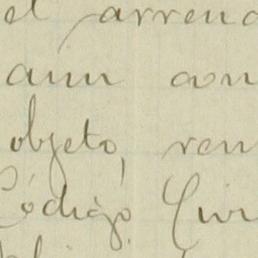 el arrend
aun con
objeto, ren
Código Civi